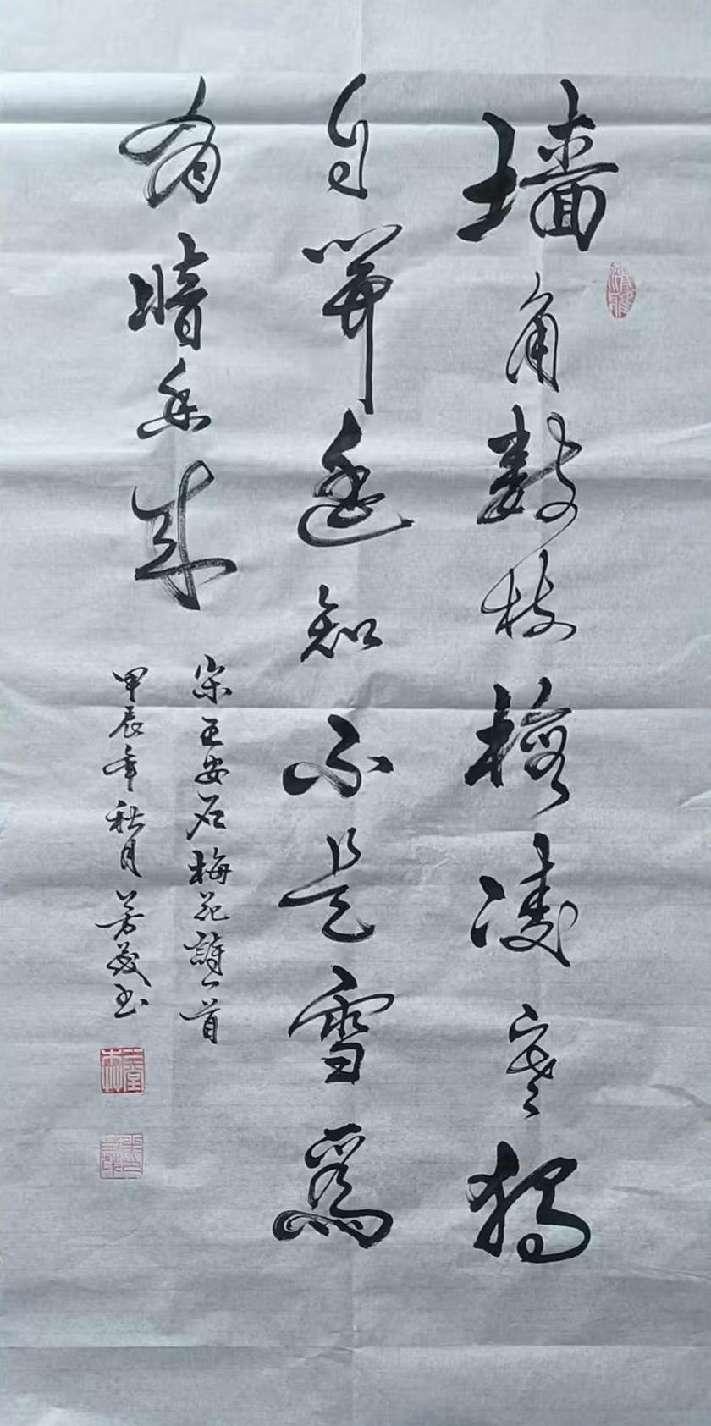 墙角数枝梅凌寒独
自开遥知不是雪为
有暗香来
宋王安石梅花诗一首
甲辰年秋月芳书